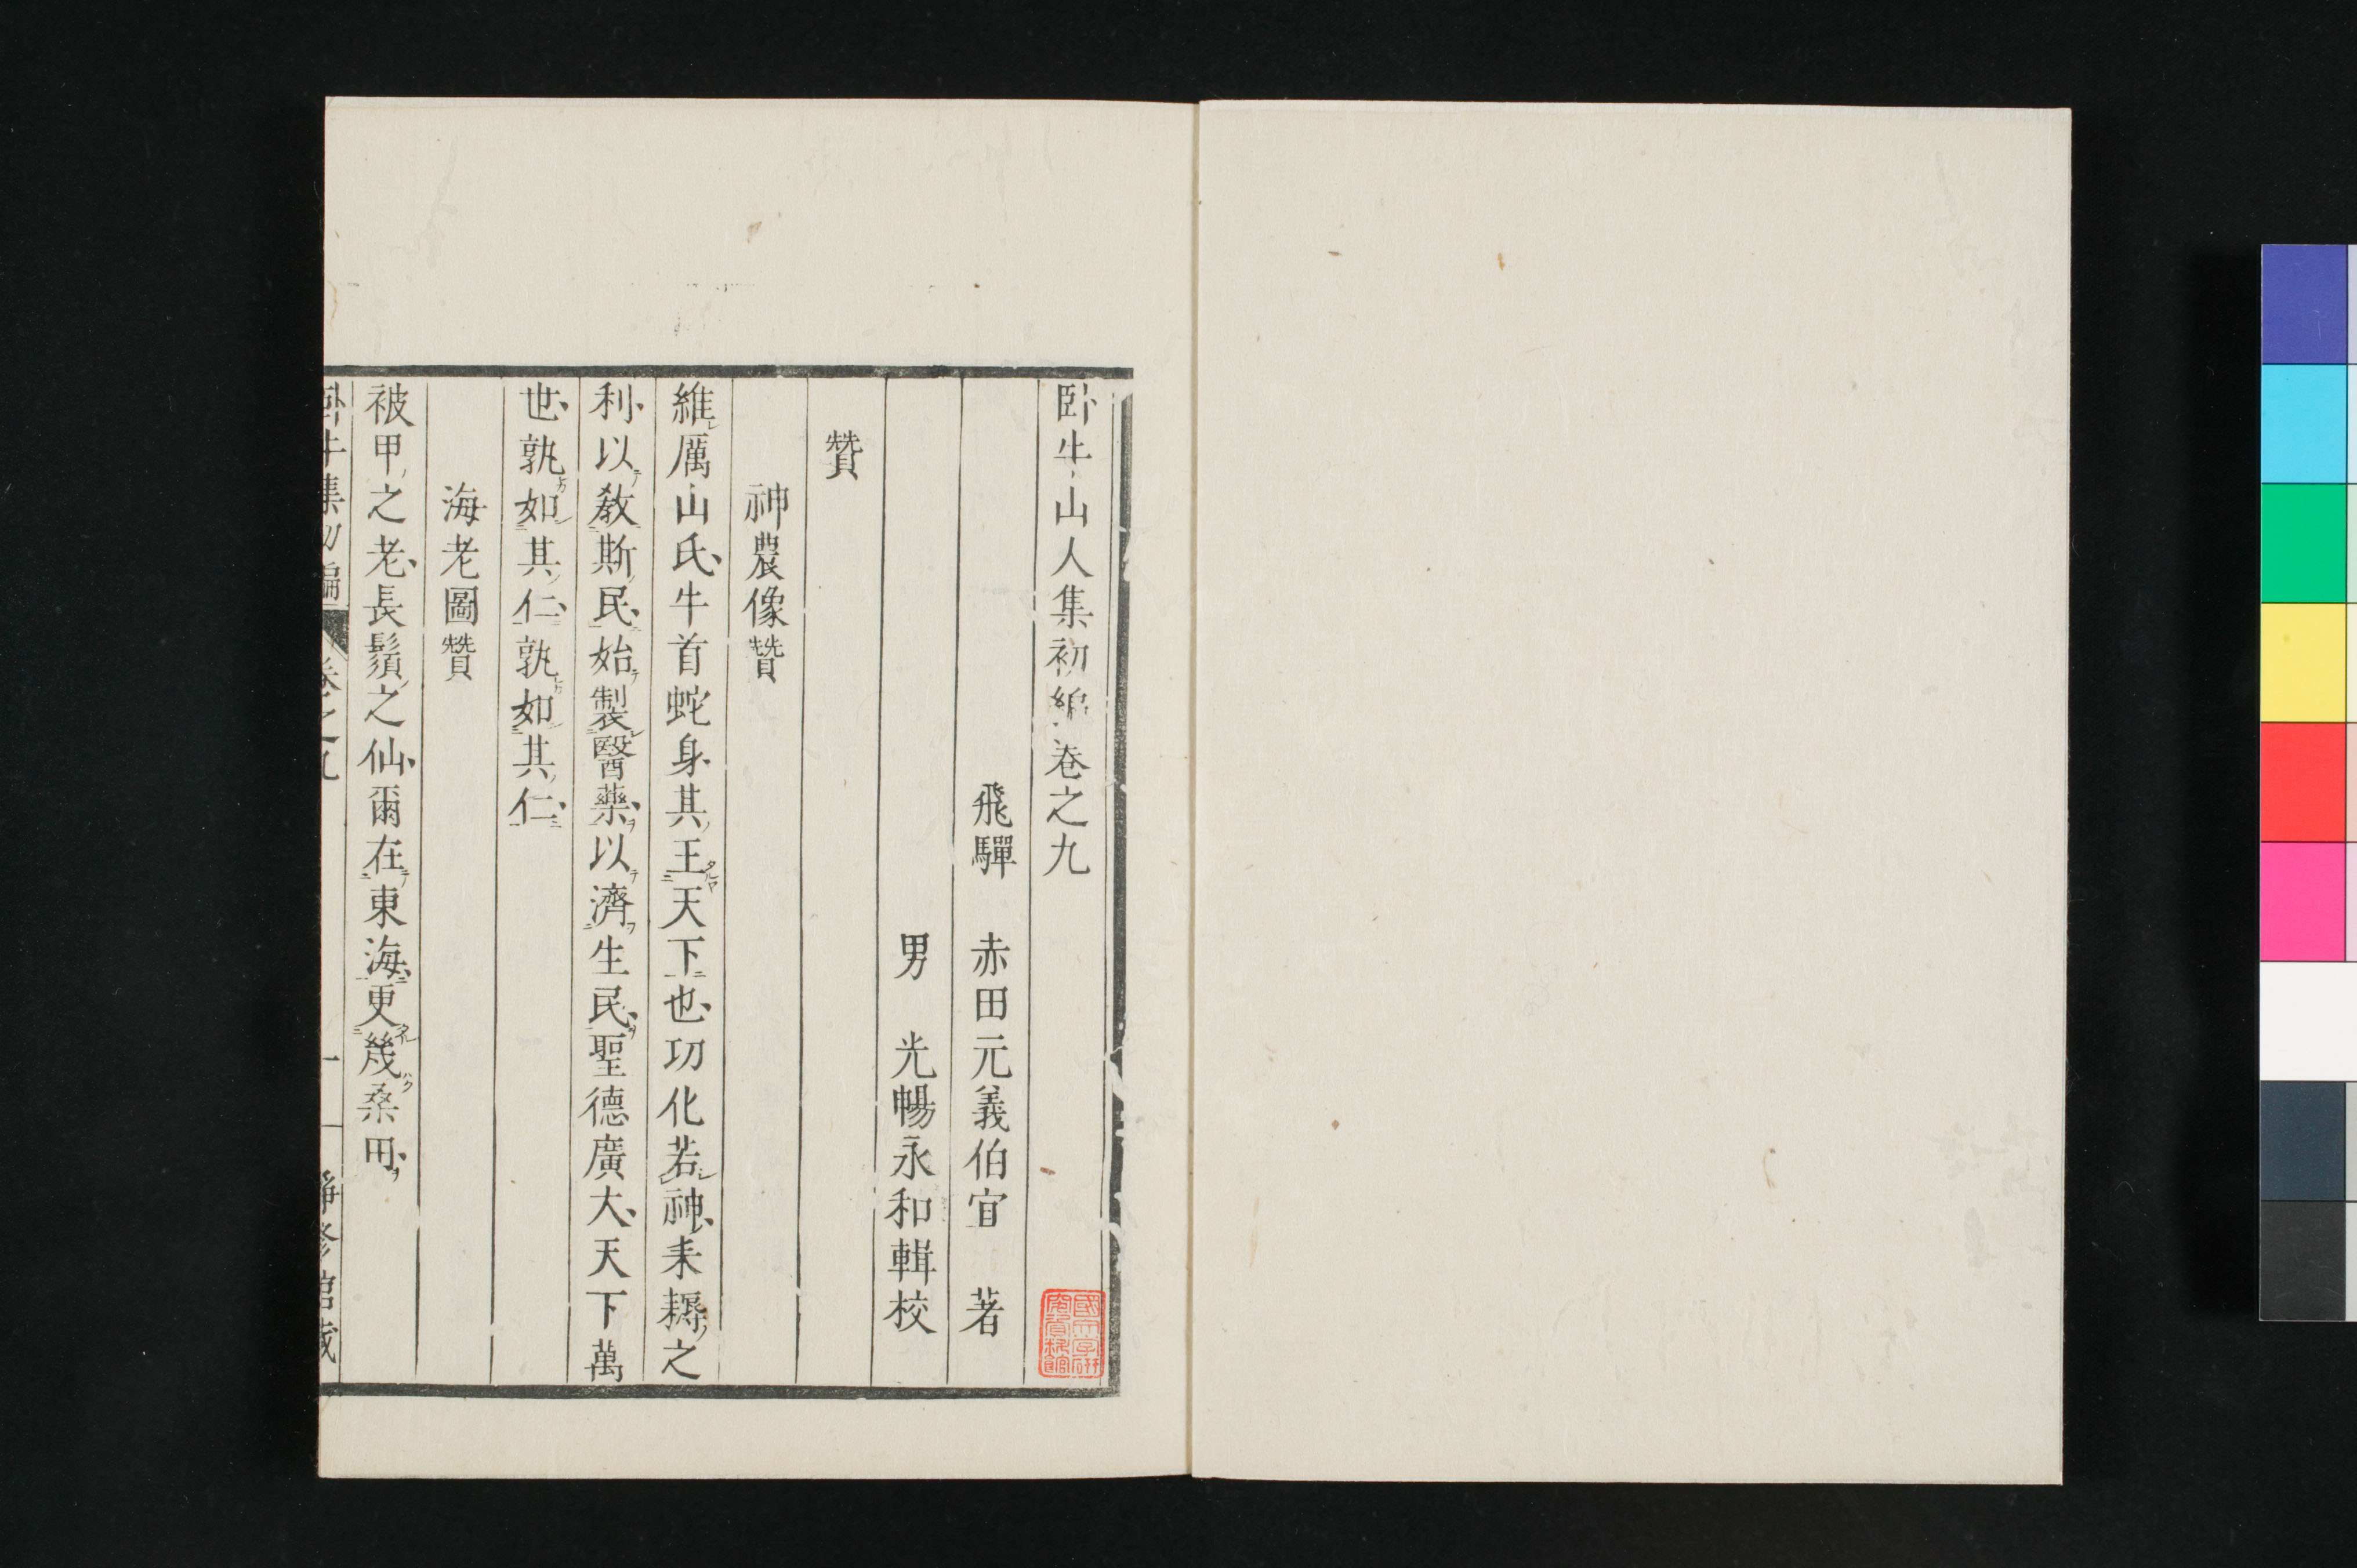 臥牛山人集初編卷之九
飛驒　赤田元義伯宜　著
男　光暢永和輯校
贊
神農像贊
維厲山氏牛首蛇身其王天下也功化若神耒耨之
利以敎斯民始製醫藥以濟生民聖德廣大天下萬
世孰如其仁孰如其仁
海老圖贊
被甲之老長鬚之仙爾在東海更幾桑田
臥牛集初編　卷之九　一　靜修館藏